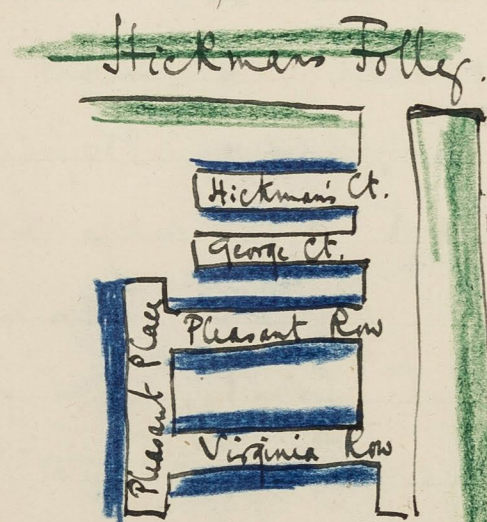 Hickmans Folley.
Hickman's Ct.
George Ct.
Pleasant Row
Pleasant Place
Virginia Row